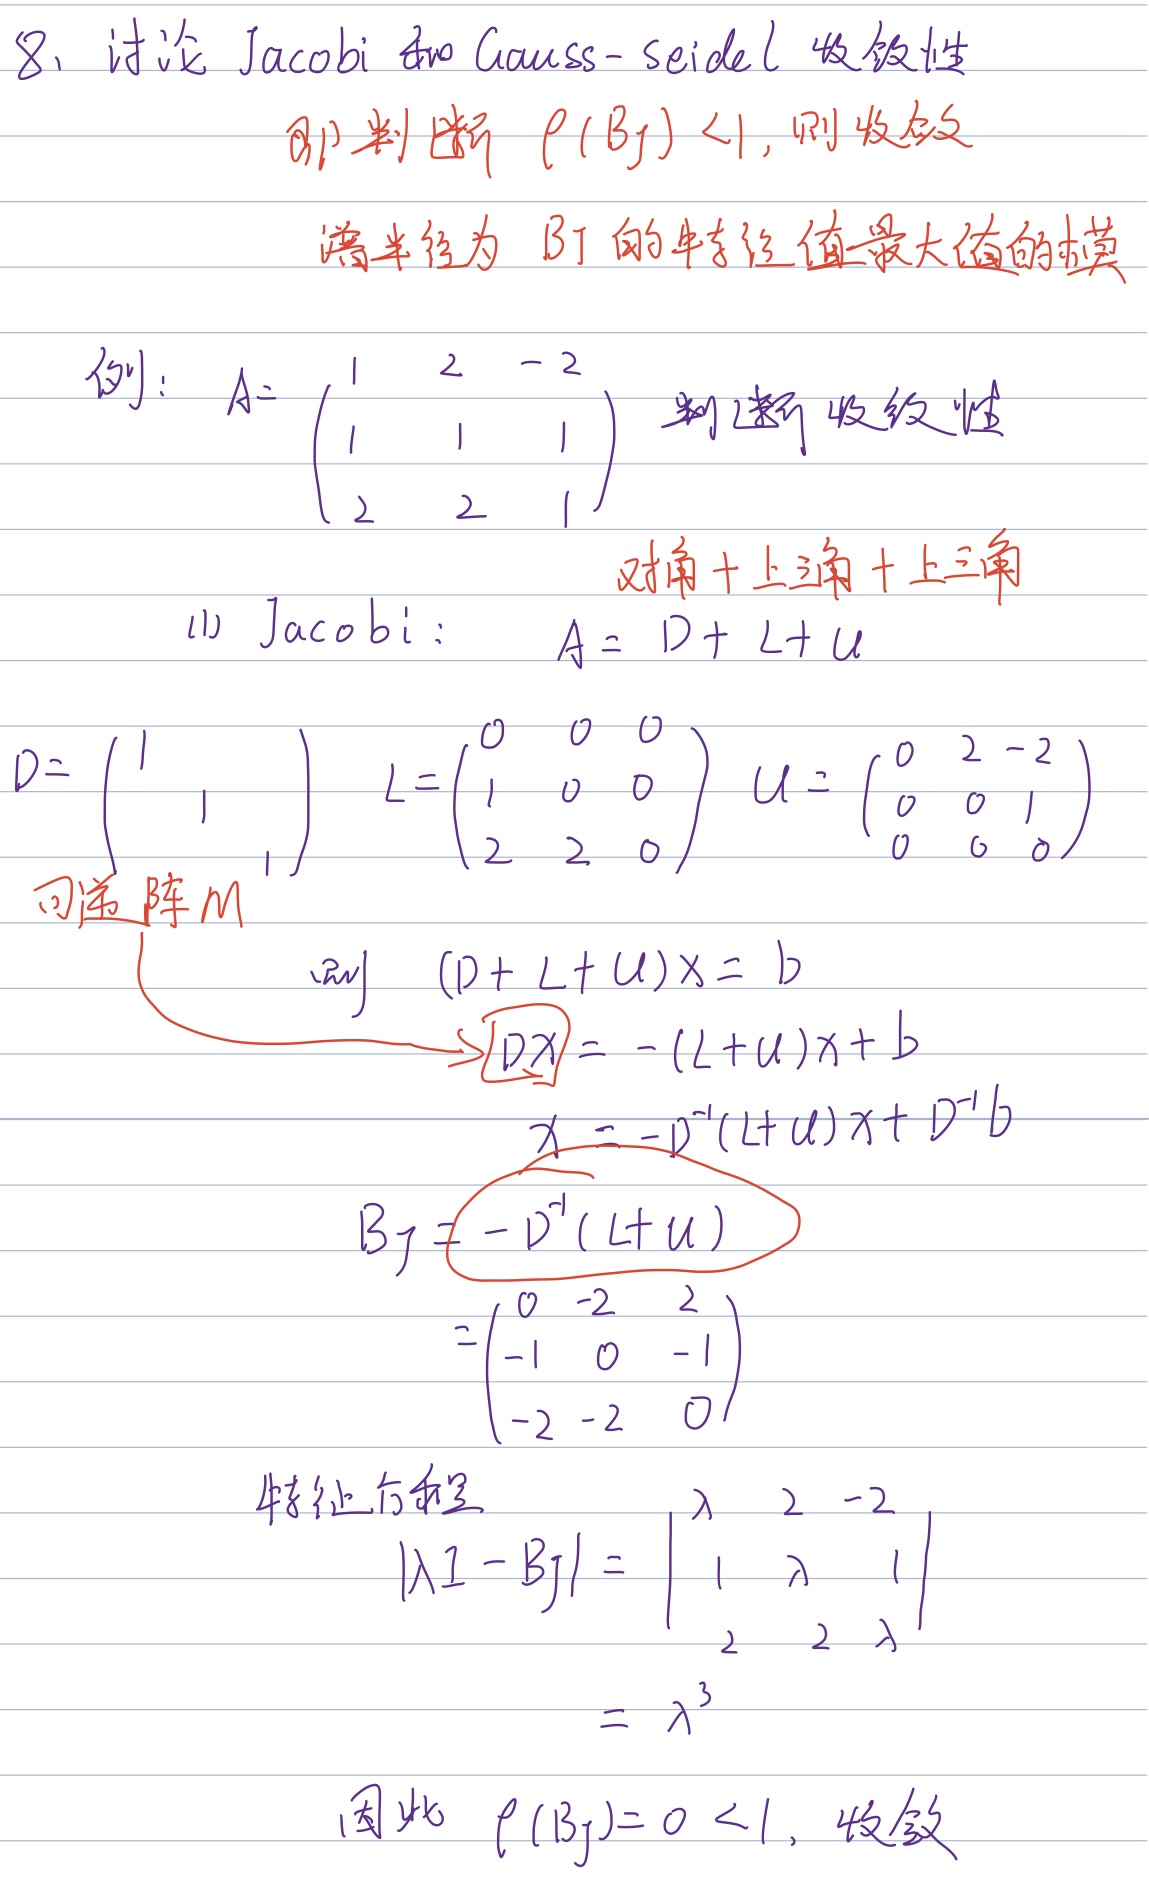 8、讨论 Jacobi 和 Gauss-seidel 收敛性
即判断 ρ(BJ) <1, 则收敛
谱半径为 BJ 的特征值最大值的模
例: A= ( 1 2 -2
1 1 1
2 2 1 ) 判断收敛性
对角 + 上三角 + 上三角
(1) Jacobi: A = D + L + U
D= ( 1 1 1 ) L= ( 0 0 0 1 0 0 2 2 0 ) U = ( 0 2 -2 0 0 1 0 0 0 )
阵 M
则 (D + L + U)x = b
Dx = -(L+U)x + b
x = -D⁻¹(L+U)x + D⁻¹b
BJ = -D⁻¹(L+U)
= ( 0 -2 2
-1 0 -1
-2 -2 0 )
特征方程
|λI - BJ| = | λ 2 -2
1 λ 1
2 2 λ |
= λ³
因此 ρ(BJ) = 0 <1, 收敛